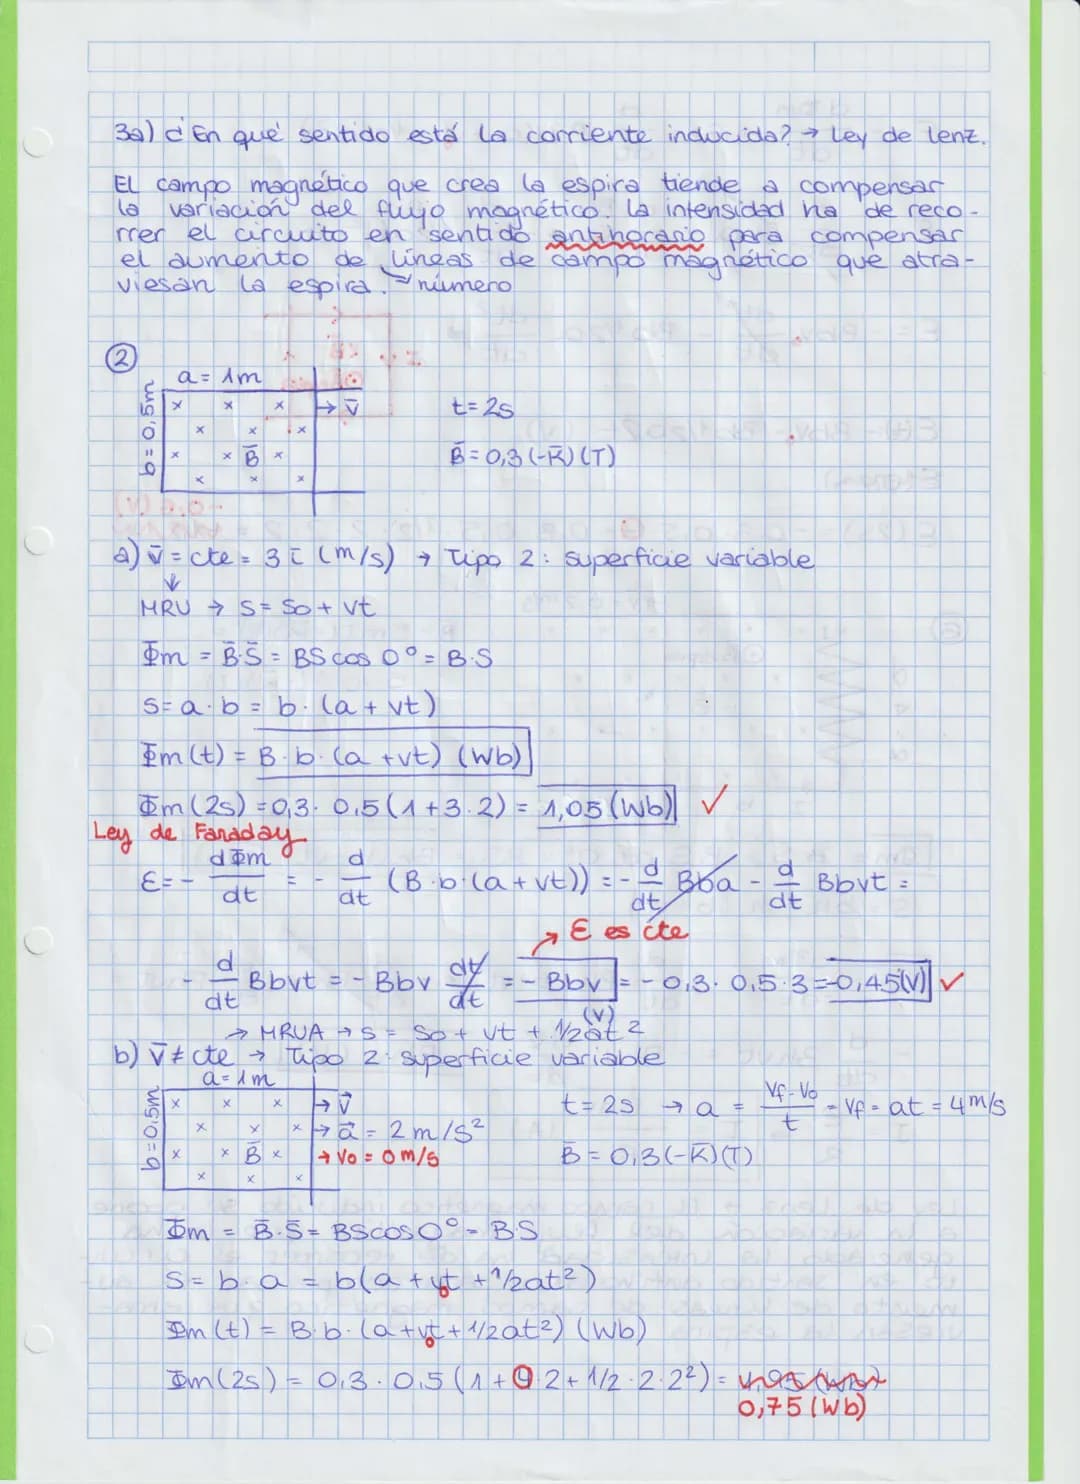 3a) ¿En qué sentido está la corriente inducida? → Ley de Lenz.
El campo magnético que crea la espira tiende a compensar
la variación del flujo magnético. La intensidad ha de reco-
rrer el circuito en sentido antihorario para compensar
el aumento de líneas de campo magnético que atra-
viesan la espira. número
②
a = 1m
b = 0,5m
→ v̄
t = 2s
B̄
B̄ = 0,3 (-k̄) (T)
a) v̄ = cte = 3 ī (m/s) → Tipo 2: superficie variable
↓
MRU → S = So + vt
Φm = B̄·S̄ = BS cos 0º = B·S
S = a·b = b·(a + vt)
Φm (t) = B·b·(a + vt) (Wb)
Φm (2s) = 0,3·0,5 (1 + 3·2) = 1,05 (Wb) ✓
Ley de Faraday
ε = - dΦm/dt = - d/dt (B·b·(a + vt)) = - d/dt Bba - d/dt Bbvt =
→ ε es cte
- d/dt Bbvt = - Bbv dt/dt = - Bbv = - 0,3·0,5·3 = -0,45 (V) ✓
(V)
→ MRUA → s = So + vt + 1/2at²
b) v̄ ≠ cte → Tipo 2: superficie variable
a = 1m
b = 0,5m
→ v⃗
t = 2s → a = Vf - Vo/t = Vf = at = 4 m/s
→ a⃗ = 2 m/s²
B̄
→ Vo = 0 m/s
B̄ = 0,3 (-k̄) (T)
Φm = B̄·S̄ = BS cos 0º = BS
S = b·a = b(a + v₀t + 1/2at²)
Φm (t) = B·b·(a + v₀t + 1/2at²) (Wb)
Φm (2s) = 0,3·0,5 (1 + 0·2 + 1/2·2·2²) =
0,75 (Wb)